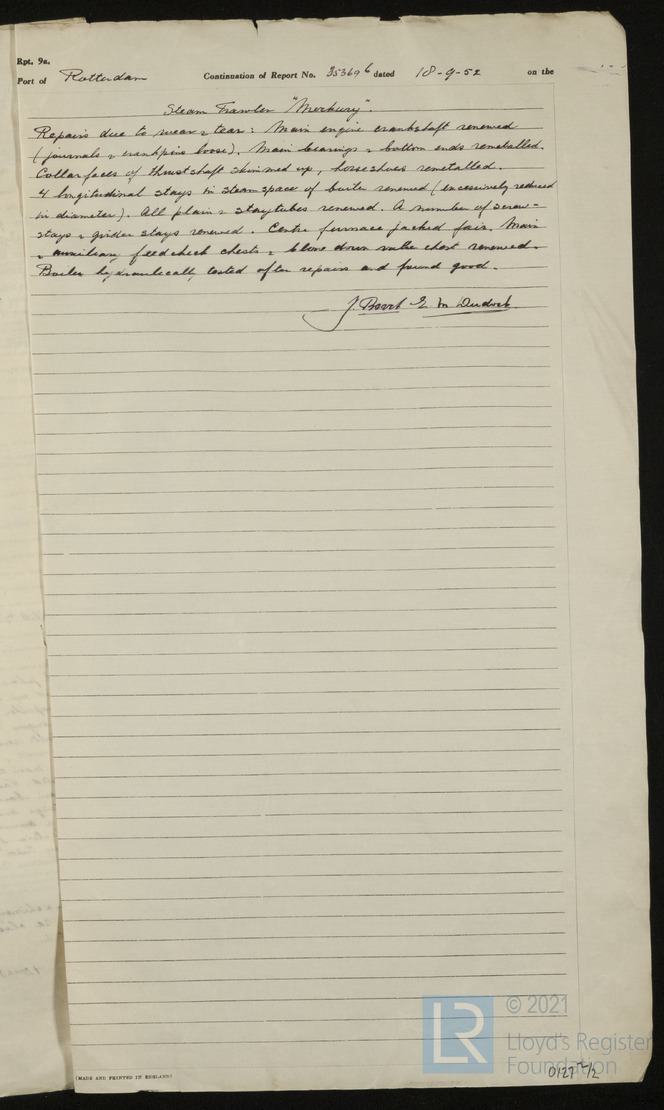 Rpt. 9a.
Port of Rotterdam Continuation of Report No. 35369 b dated 18-9-52 on the
Steam Trawler "Merkury".
Repairs due to wear & tear: Main engine crankshaft renewed
(journals & crankpins loose). Main bearings & bottom ends remetalled.
Collar faces of thrust shaft skimmed up, horseshoes remetalled.
4 longitudinal stays in steam space of boiler renewed (excessively reduced
in diameter). All plain & staytubes renewed. A number of screw-
stays & girder stays renewed. Centre furnace jacked fair. Main
& auxiliary feed check chests & blow down valve chest renewed.
Boiler hydraulically tested after repairs and found good.
J.
(MADE AND PRINTED IN ENGLAND)
© 2021
LR
Lloyd's Register
Foundation
0127 2/2